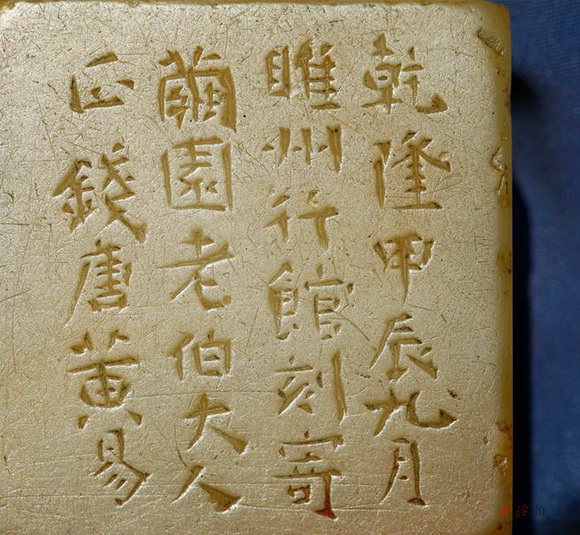 乾隆甲辰九月
睢州行館刻寄
繭園老伯大人
正錢唐黃易